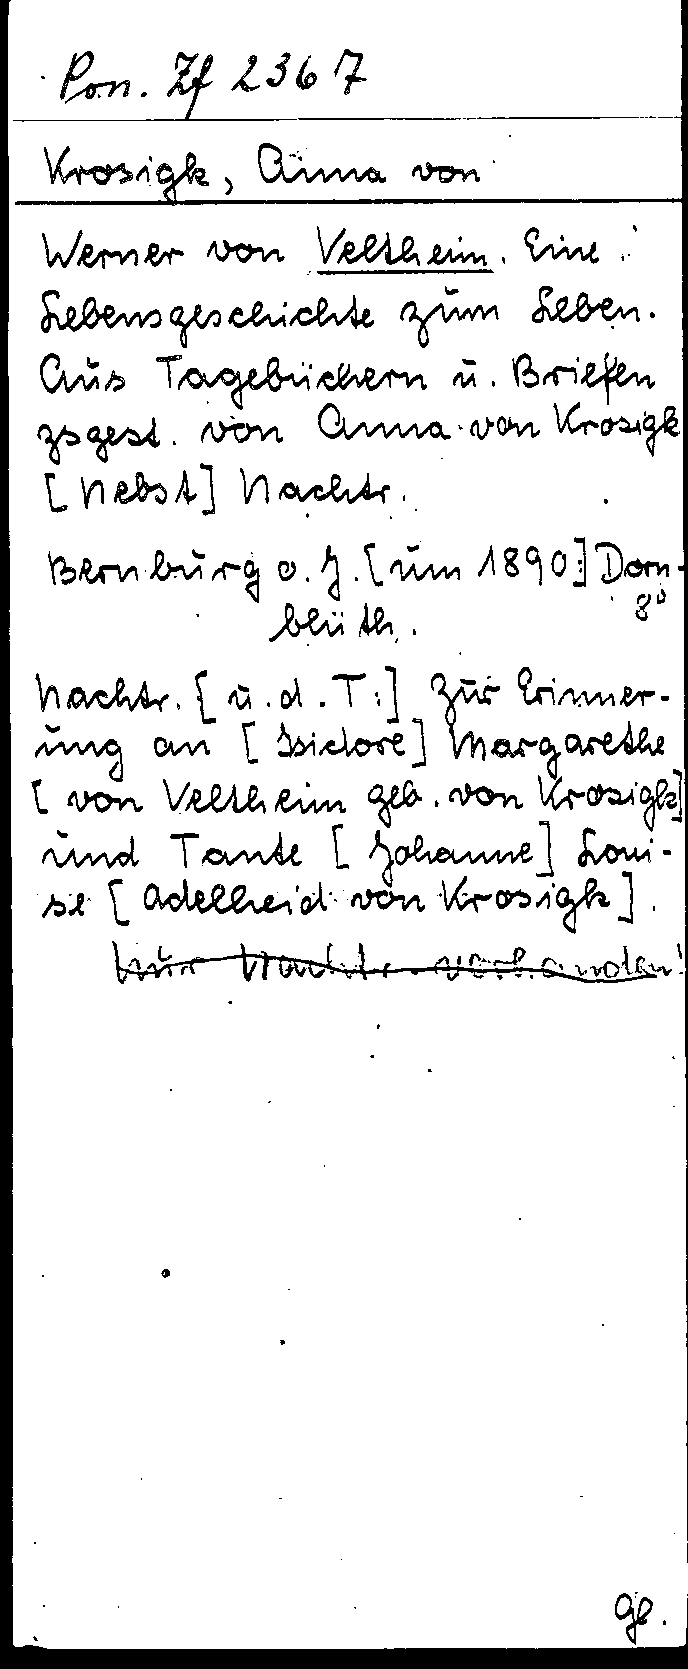 Pon. Zf 2367
Krosigk, Anna von
Werner von Veltheim. Eine
Lebensgeschichte zum Leben.
Aus Tagebüchern u. Briefen
zsgest. von Anna von Krosigk
[Nebst] Nachtr.
Bernburg o. J. [um 1890:] Dorn-
blüth. 8°
Nachtr. [u. d. T.:] Zur Erinner-
ung an [Isidore] Margarethe
[von Veltheim geb. von Krosigk]
und Tante [Johanne] Loui-
se [Adelheid von Krosigk].
Nur Nachtr. vorhanden!
Gl.